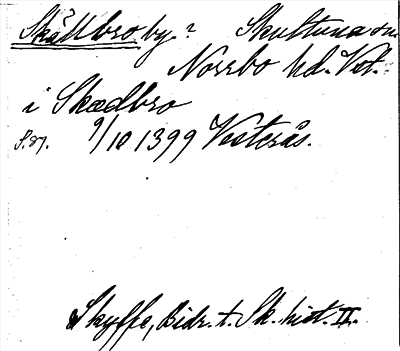 Skådbro by? Skultuna sn.
Norrbo hd. Vst.
i Skædbro
S. 87. 9/10 1399 Vesterås.
Skyffe, Bidr. t. Sk. hist. II.